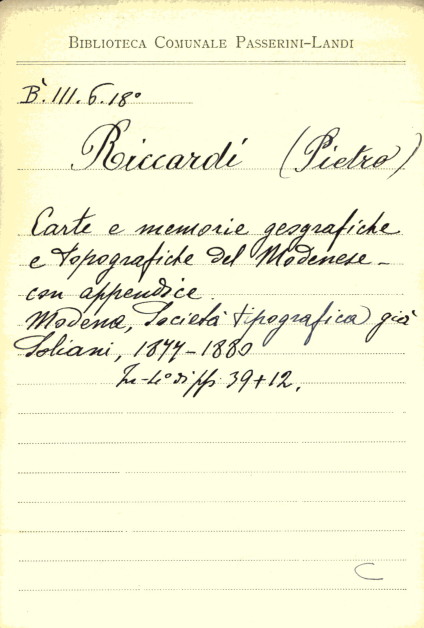 BIBLIOTECA COMUNALE PASSERINI-LANDI
B. III. 6. 18°
Riccardi (Pietro)
Carte e memorie geografiche
e topografiche del Modenese -
con appendice.
Modena, Società tipografica già
Soliani, 1877-1880
In-4° di pp. 39+12.
C